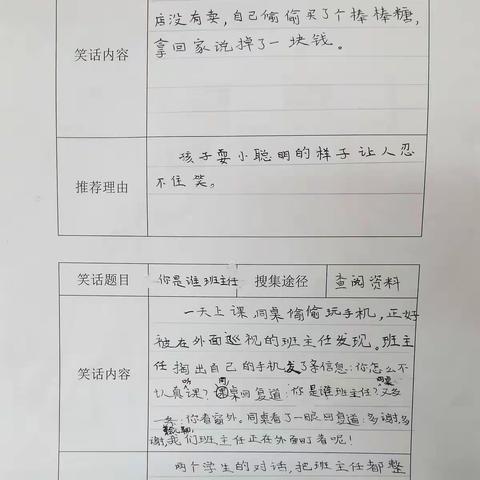 店没有卖，自己偷偷买了个棒棒糖，
笑话内容
拿回家说掉了一块钱。
孩子耍小聪明的样子让人忍
推荐理由
不住笑。
笑话题目 你是谁班主任 搜集途径 查阅资料
一天上课同桌偷偷玩手机，正好
被在外面巡视的班主任发现。班主
笑话内容
任掏出自己的手机发了条信息：你怎么不
认真听课？同桌回复道：你是谁班主任？
条：你看窗外。同桌看了一眼回复道：多谢，多
谢，我们班主任正在外面盯着呢！
两个学生的对话，把班主任都整